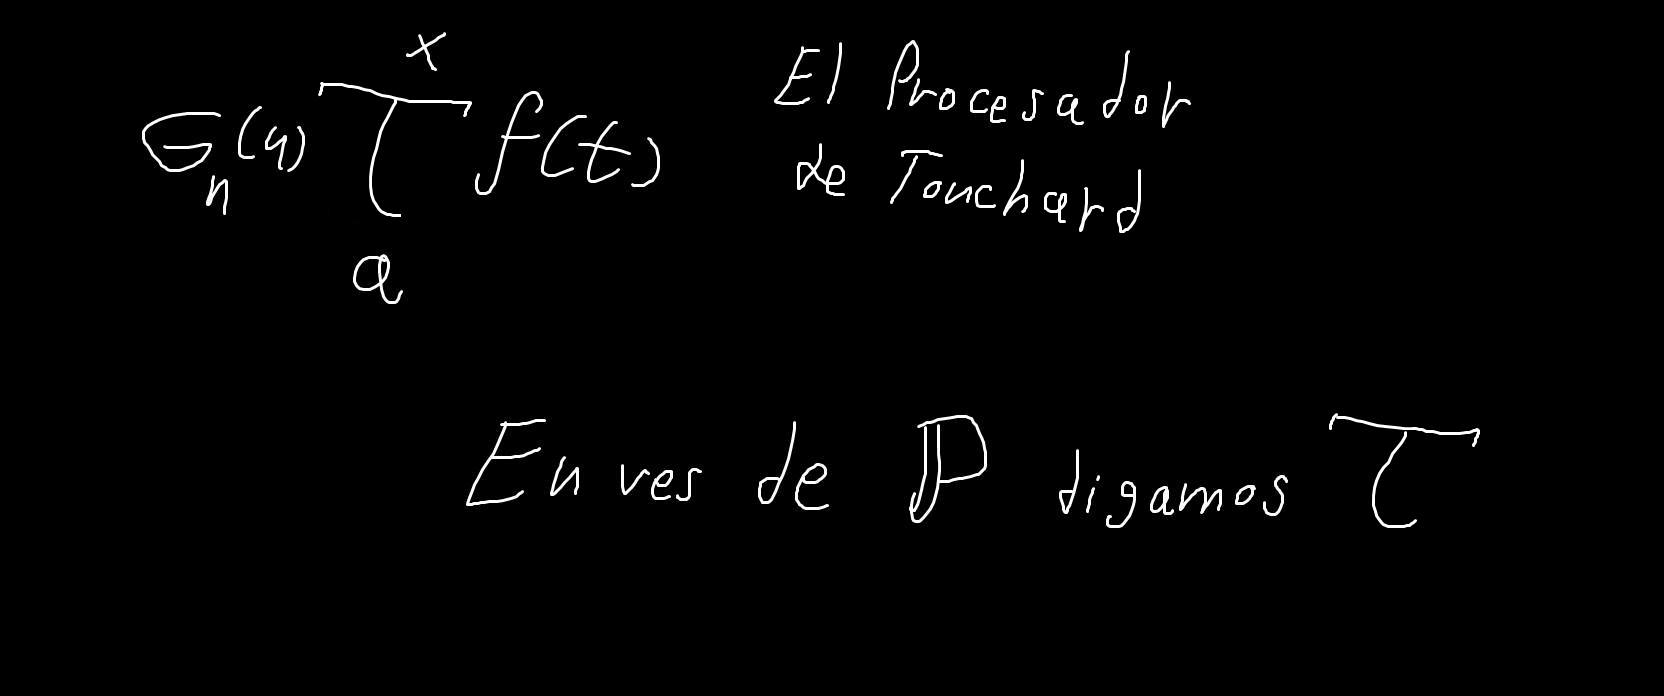 x
G_n^(4) T f(t)
a
El Procesador
de Touchard
En ves de ℙ digamos T